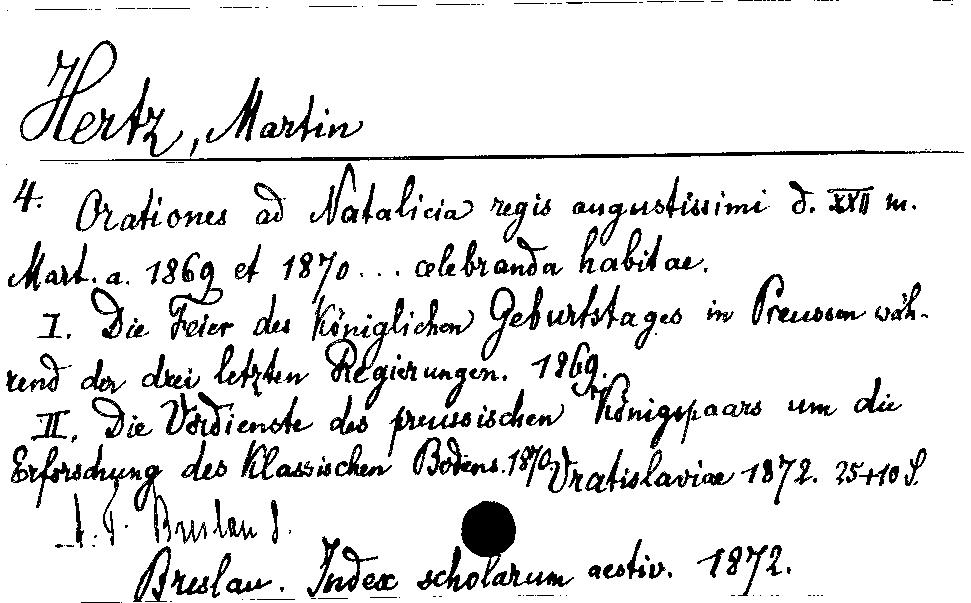 Hertz, Martin
4. Orationes ad Natalicia regis augustissimi d. XXII m.
Mart. a. 1869 et 1870 ... celebranda habitae.
I. Die Feier des Königlichen Geburtstages in Preussen wäh-
rend der drei letzten Regierungen. 1869.
II. Die Verdienste des preussischen Königspaars um die
Erforschung des Klassischen Bodens. 1870. Vratislaviae 1872. 25+10 S.
Breslau
Breslau. Index scholarum aestiv. 1872.